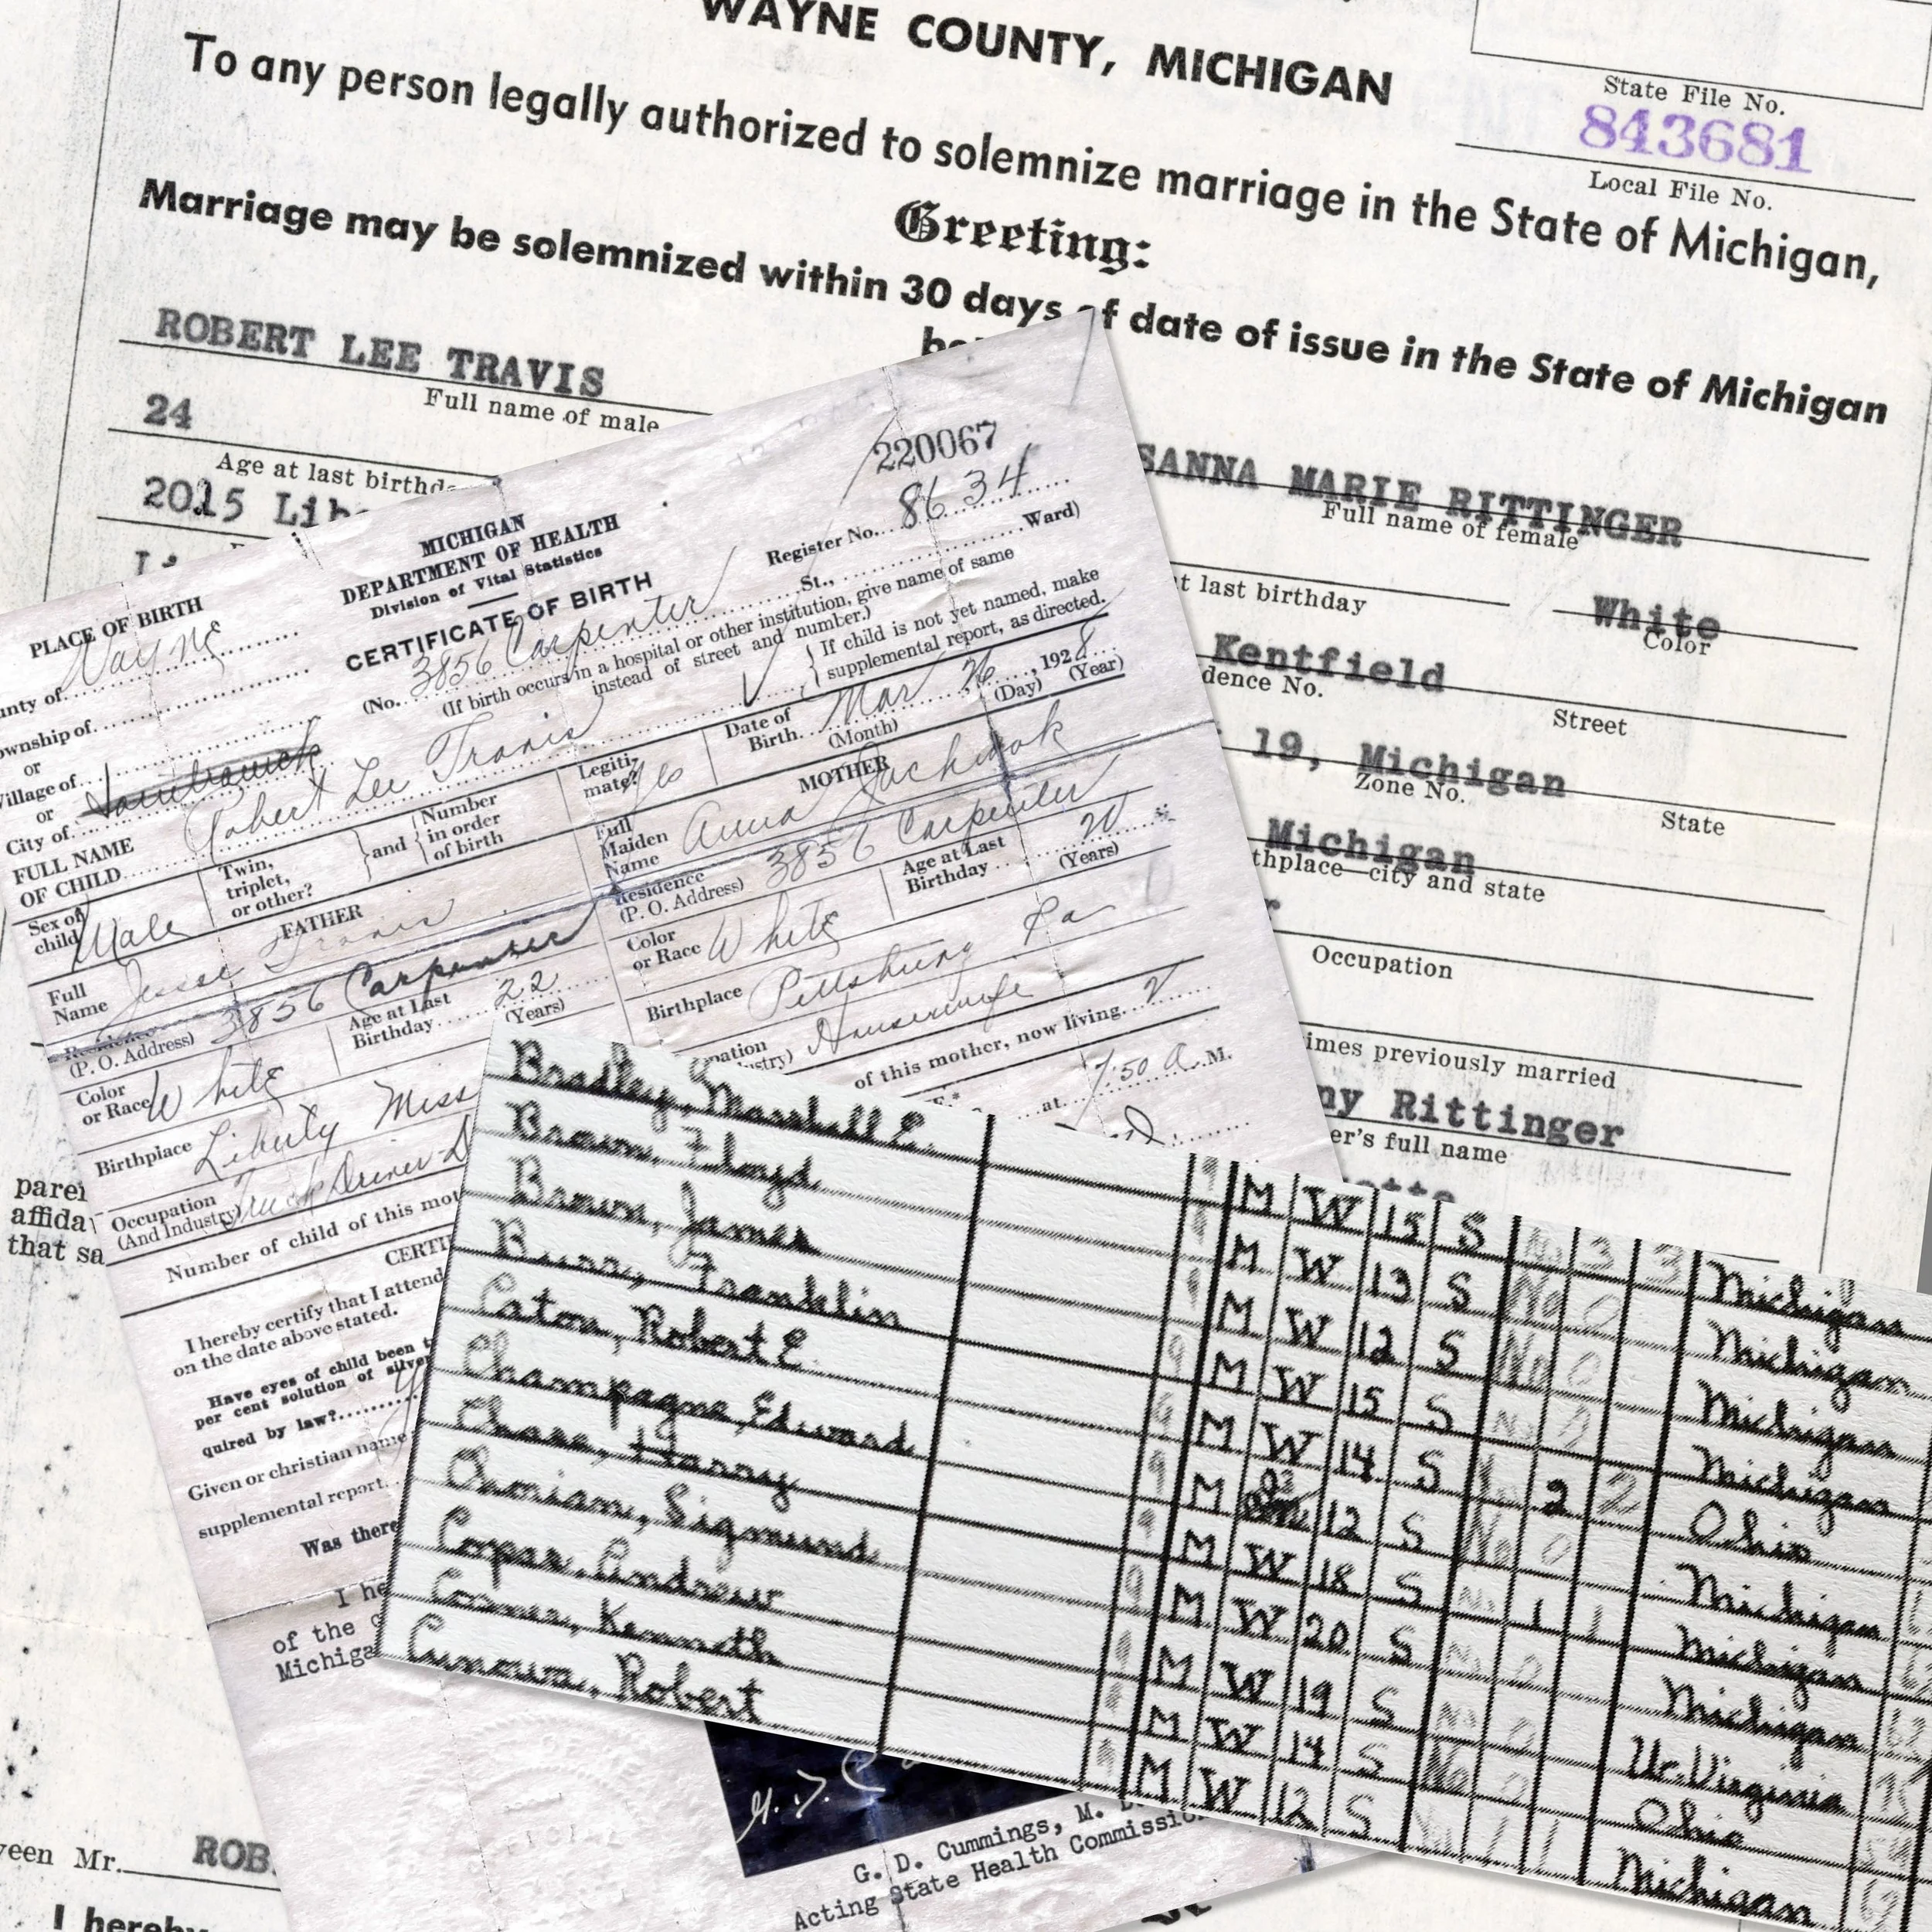 WAYNE COUNTY, MICHIGAN
State File No.
843681
Local File No.
To any person legally authorized to solemnize marriage in the State of Michigan,
Greeting:
Marriage may be solemnized within 30 days of date of issue in the State of Michigan
ROBERT LEE TRAVIS
Full name of male
24
Age at last birthd
2015 Lib
SANNA MARIE RITTINGER
Full name of female
t last birthday
White
Color
Kentfield
dence No.
Street
19, Michigan
Zone No.
State
Michigan
thplace—city and state
r
Occupation
imes previously married
ny Rittinger
er's full name
parei
affida
that sa
een Mr. ROB
I hereby
220067
MICHIGAN
DEPARTMENT OF HEALTH
Division of Vital Statistics
CERTIFICATE OF BIRTH
Register No. 8634
PLACE OF BIRTH
unty of Wayne
ownship of
or
Village of
or
City of
(No. 3856 Carpenter St., Ward)
(If birth occurs in a hospital or other institution, give name of same
instead of street and number.)
FULL NAME
OF CHILD Robert Lee Travis
{ If child is not yet named, make
supplemental report, as directed.
Sex of
child Male
Twin,
triplet,
or other?
} and {
Number
in order
of birth
Legiti-
mate? Yes
Date of
Birth Mar 26, 1928
(Month) (Day) (Year)
FATHER
Full
Name Jesse Travis
Residence
(P. O. Address) 3856 Carpenter
Color
or Race White
Age at Last
Birthday 22
(Years)
Birthplace Liberty Miss
Occupation
(And Industry) Truck Driver
Number of child of this mot
MOTHER
Full
Maiden
Name Anna
Residence
(P. O. Address) 3856 Carpenter
Color
or Race White
Age at Last
Birthday 20
(Years)
Birthplace Pittsburg Pa
pation
ustry) Housewife
of this mother, now living 2
CERTI
I hereby certify that I attend
on the date above stated.
at 7:50 A.M.
Have eyes of child been t
per cent solution of silver
quired by law?
Given or christian name
supplemental report
Was there
I he
of the
Michiga
OFFICIAL
G. D. Cummings, M. D
Acting State Health Commissio
Bradley, Marshall E. M W 15 S No 3 3 Michigan
Brown, Floyd M W 13 S No 0 Michigan
Brown, James M W 12 S No 0 Michigan
Burr, Franklin M W 15 S No 0 Michigan
Eaton, Robert E. M W 14 S 2 2 Ohio
Champagne, Edward M 12 S No 0 Michigan
Chase, Harry M W 18 S No 1 1 Michigan
Sigmund M W 20 S No 0 Michigan
Andrew M W 19 S No 0 W. Virginia
Kenneth M W 14 S No 0 Ohio
Robert M W 12 S No 1 1 Michigan